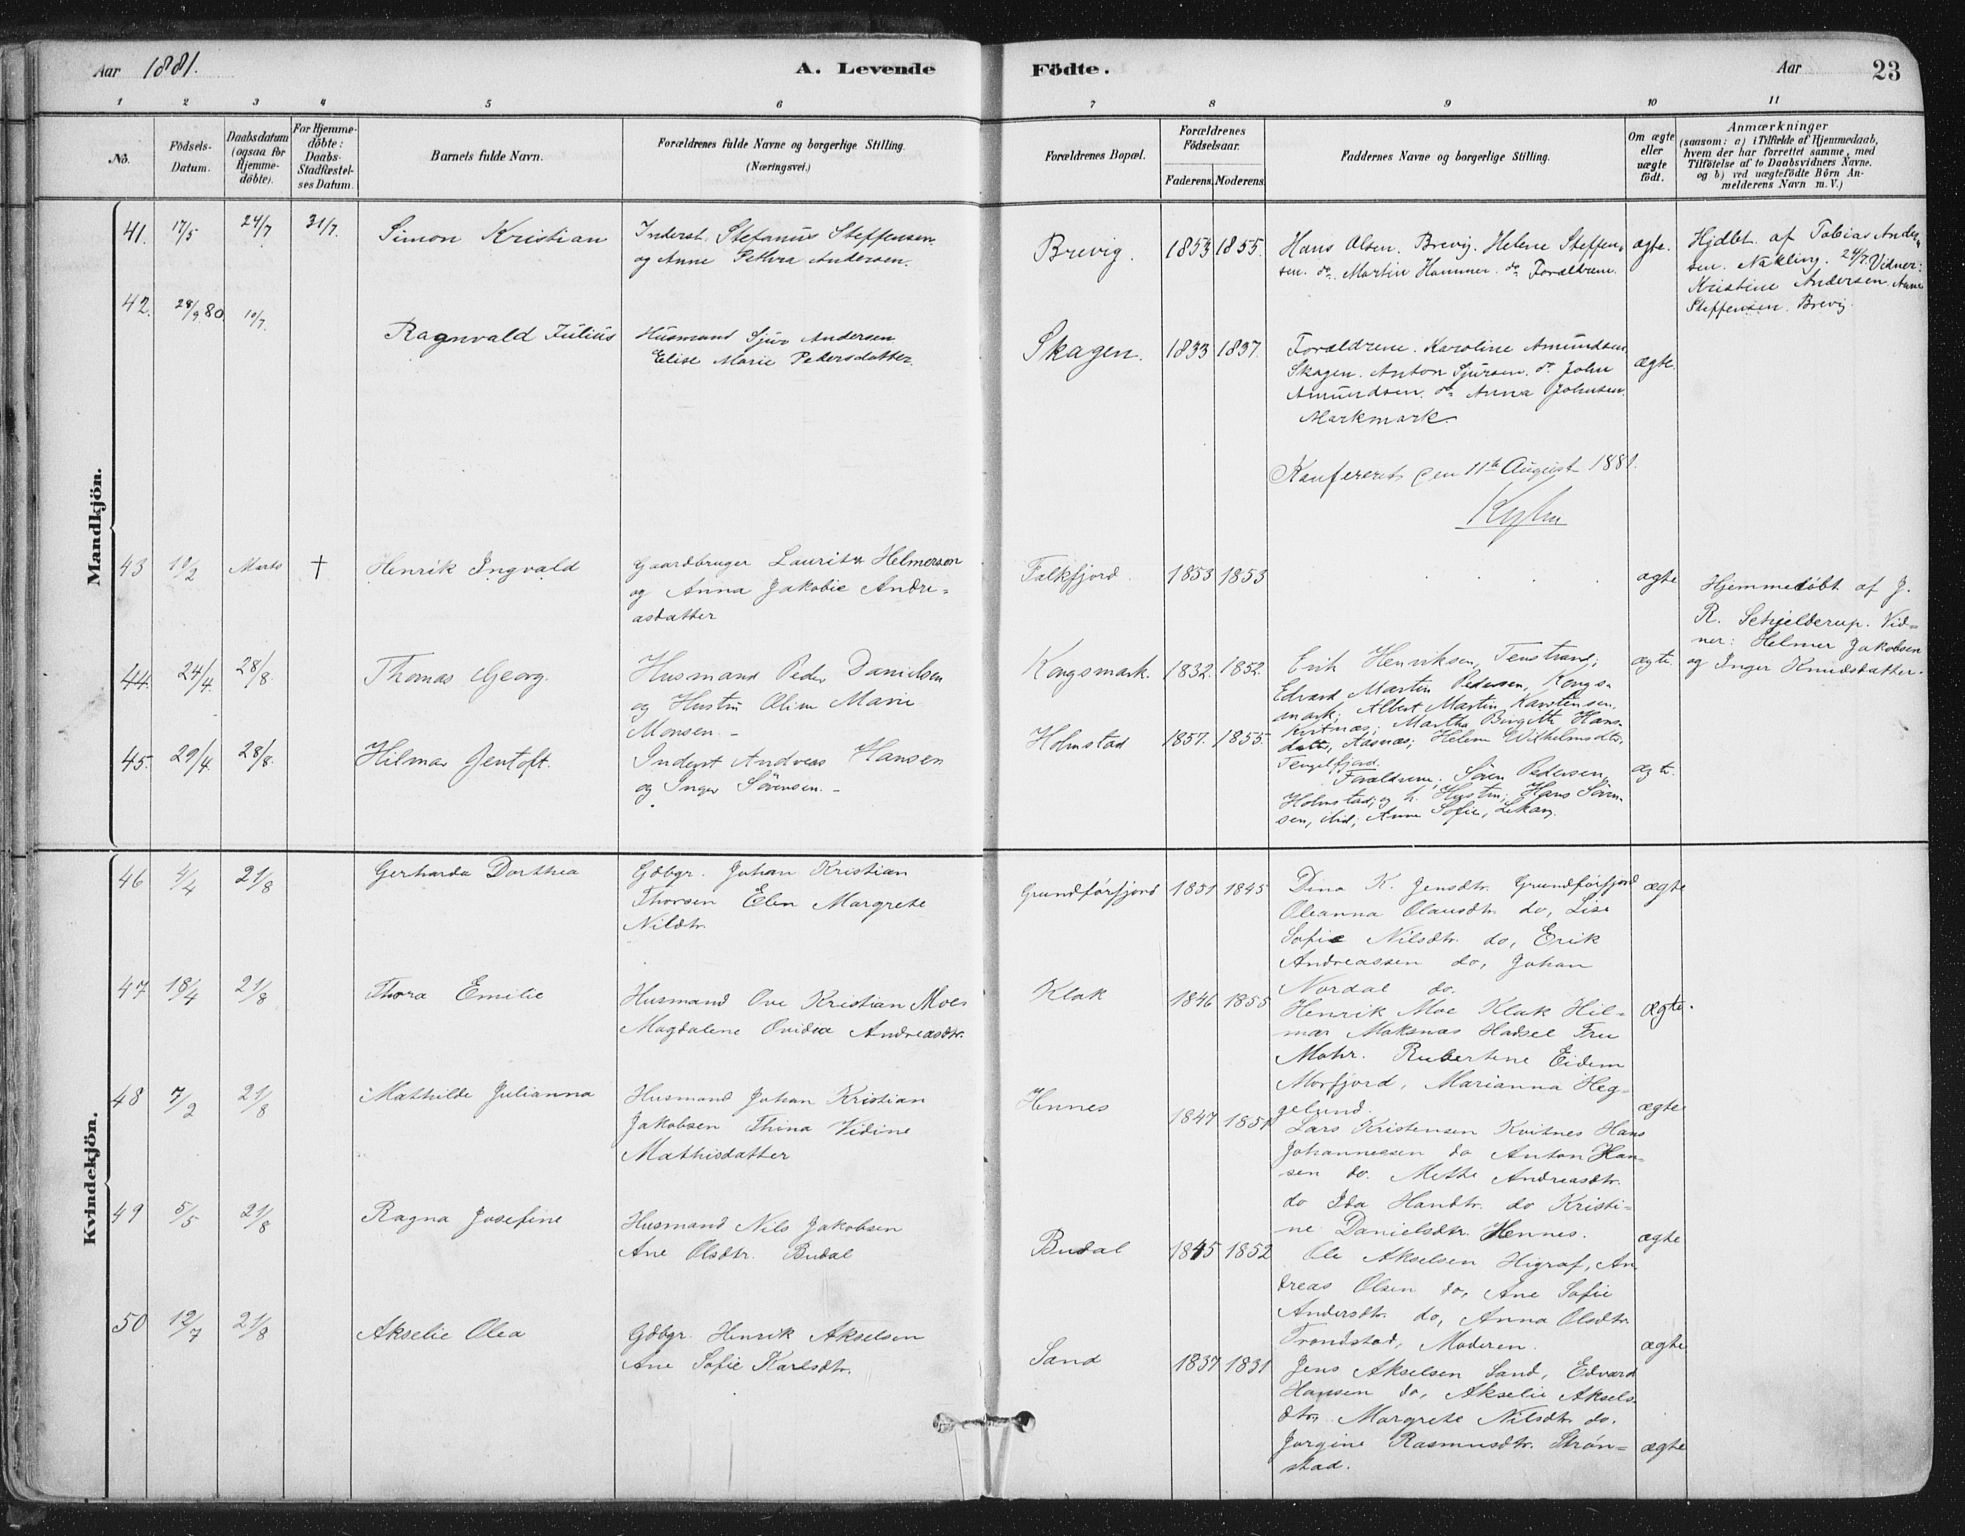 Aar 1881.
A. Levende Födte.
Aar 23
1 2 3 4 5 6 7 8 9 10 11
No.
Födsels-
Datum.
Daabsdatum
(ogsaa for
Hjemme-
döbte).
For Hjemme-
döbte:
Daabs-
Stadfæstel-
ses Datum.
Barnets fulde Navn.
Forældrenes fulde Navne og borgerlige Stilling.
(Næringsvei.)
Forældrenes Bopæl.
Forældrenes
Födselsaar.
Faderens. Moderens.
Faddernes Navne og borgerlige Stilling.
Om ægte
eller
uægte
födt.
Anmærkninger
(saasom: a) i Tilfælde af Hjemmedaab,
hvem der har forrettet samme, med
Tilföielse af to Daabsvidners Navne.
og b) ved uægtefödte Börn An-
melderens Navn m. V.)
Mandkjön.
41. 17/5 24/7 31/7.
Simon Kristian
Inderst. Stefanus Steffensen
og Anne Pethra Andersen.
Brevig. 1853 1855.
Hans Olsen. Brevig. Helene Steffen-
sen. do. Martin Hammer. do. Forældrene.
ægte.
Hjdbt. af Tobias Ander-
sen. Nækling. 24/7. Vidner:
Kristine Andersen. Anne
Steffensen. Brevig.
42. 28/9 80 10/7.
Ragnvald Julius
Husmand Sjur Andersen
Elise Marie Pedersdatter.
Skagen. 1833 1837.
Forældrene. Karoline Amundsen
Skagen. Anton Sjursen. do John
Amundsen. do Anna Johnsen
Markmark.
ægte.
Konfereret den 11te August 1881.
43 10/2 Marts †
Henrik Ingvald
Gaardbruger Lauritz Helmersen
og Anna Jakobie Andre-
asdatter
Falkfjord. 1853 1853
ægte
Hjemmedöbt af J.
R. Schjelderup. Vid-
ner: Helmer Jakobsen
og Inger Knudsdatter.
44. 24/4. 28/8.
Thomas Georg.
Husmand Peder Danielsen
og Hustru Oline Marie
Monsen. –
Kongsmark. 1832. 1852.
Erik Henriksen, Tenstrand;
Edvard Martin Pedersen, Kongs-
mark; Albert Martin Karstensen,
Kvitnæs; Martha Birgitte Hans-
datter, Aasnæs; Helene Wilhelmsdtr,
Tengelfjord.
ægte.
45. 29/4. 28/8.
Hilmar Jentoft.
Inderst Andreas Hansen
og Inger Sørensen. –
Holmstad 1857. 1855.
Forældrene. Sören Pedersen,
Holmstad, og h. Hustru; Hans Sören-
sen, ibid; Anne Sofie,
ægte.
Kvindekjön.
46 4/4 21/8
Gerharda Dorthea
Gdbgr. Johan Kristian
Thorsen Elen Margrete
Nilsdtr.
Grundförfjord 1851 1845
Dina K. Jensdtr. Grundförfjord
Oleanna Olausdtr do, Lise
Sofie Nilsdtr. do, Erik
Andreassen do, Johan
Nordal do.
ægte
47 18/4 21/8
Thora Emilie
Husmand Ove Kristian Moe
Magdalene Ovidia Andreasdtr.
Klak 1846 1855
Henrik Moe Klak Hil-
mar Moksnæs Hadsel Fru
Mohr. Rubertine Eidem
Morfjord, Marianna Heg-
gelund.
ægte.
48 7/2 21/8
Mathilde Julianna
Husmand Johan Kristian
Jakobsen Thina Vidine
Mathisdatter
Hennes 1847 1851
Lars Kristensen Kvitnes Hans
Johannessen do Anton Han-
sen do. Mette Andreasdtr.
do Ida Handtr. do Kristi-
ne Danielsdtr. Hennes.
ægte
49 5/5 21/8
Ragna Josefine
Husmand Nils Jakobsen
Ane Olsdtr. Budal
Budal 1845 1852
Ole Akselsen Higraf, An
dreas Olsen do, Ane Sofie
Andersdtr. do, Anna Olsdtr.
Trondstad, Moderen.
ægte
50 12/7 21/8
Akselie Olea
Gdbgr. Henrik Akselsen
Ane Sofie Karlsdtr.
Sand 1837 1831
Jens Akselsen Sand, Edvard
Hansen do, Akselie Aksels
dtr. Margrete Nilsdtr do.
Jorgine Rasmusdtr. Strøn-
stad.
ægte
ægte